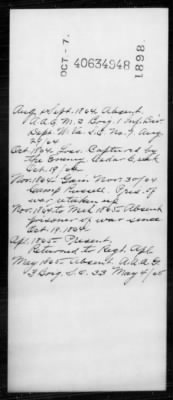 OCT - 7.
40634948
1898.
Aug & Sept. 1864 Absent
A.A.A.G. 2 Brig. 1 Inf. Div
Dept W. Va S.O. No 9. Aug
Oct. 1864 Loss. Captured by
the Enemy Cedar Creek
Oct. 19/64
Nov. 1864 Gain. Nov. 30/64
Camp Russell. Pris. of
war taken up
Nov. 1864 to Mch 1865 Absent
prisoner of war since
Oct. 19. 1864.
Apl. 1865 Present
Returned to Regt. Apl
May 1865 Absent. A.A.A.G.
3 Brig. S.O. 33 May 4/65